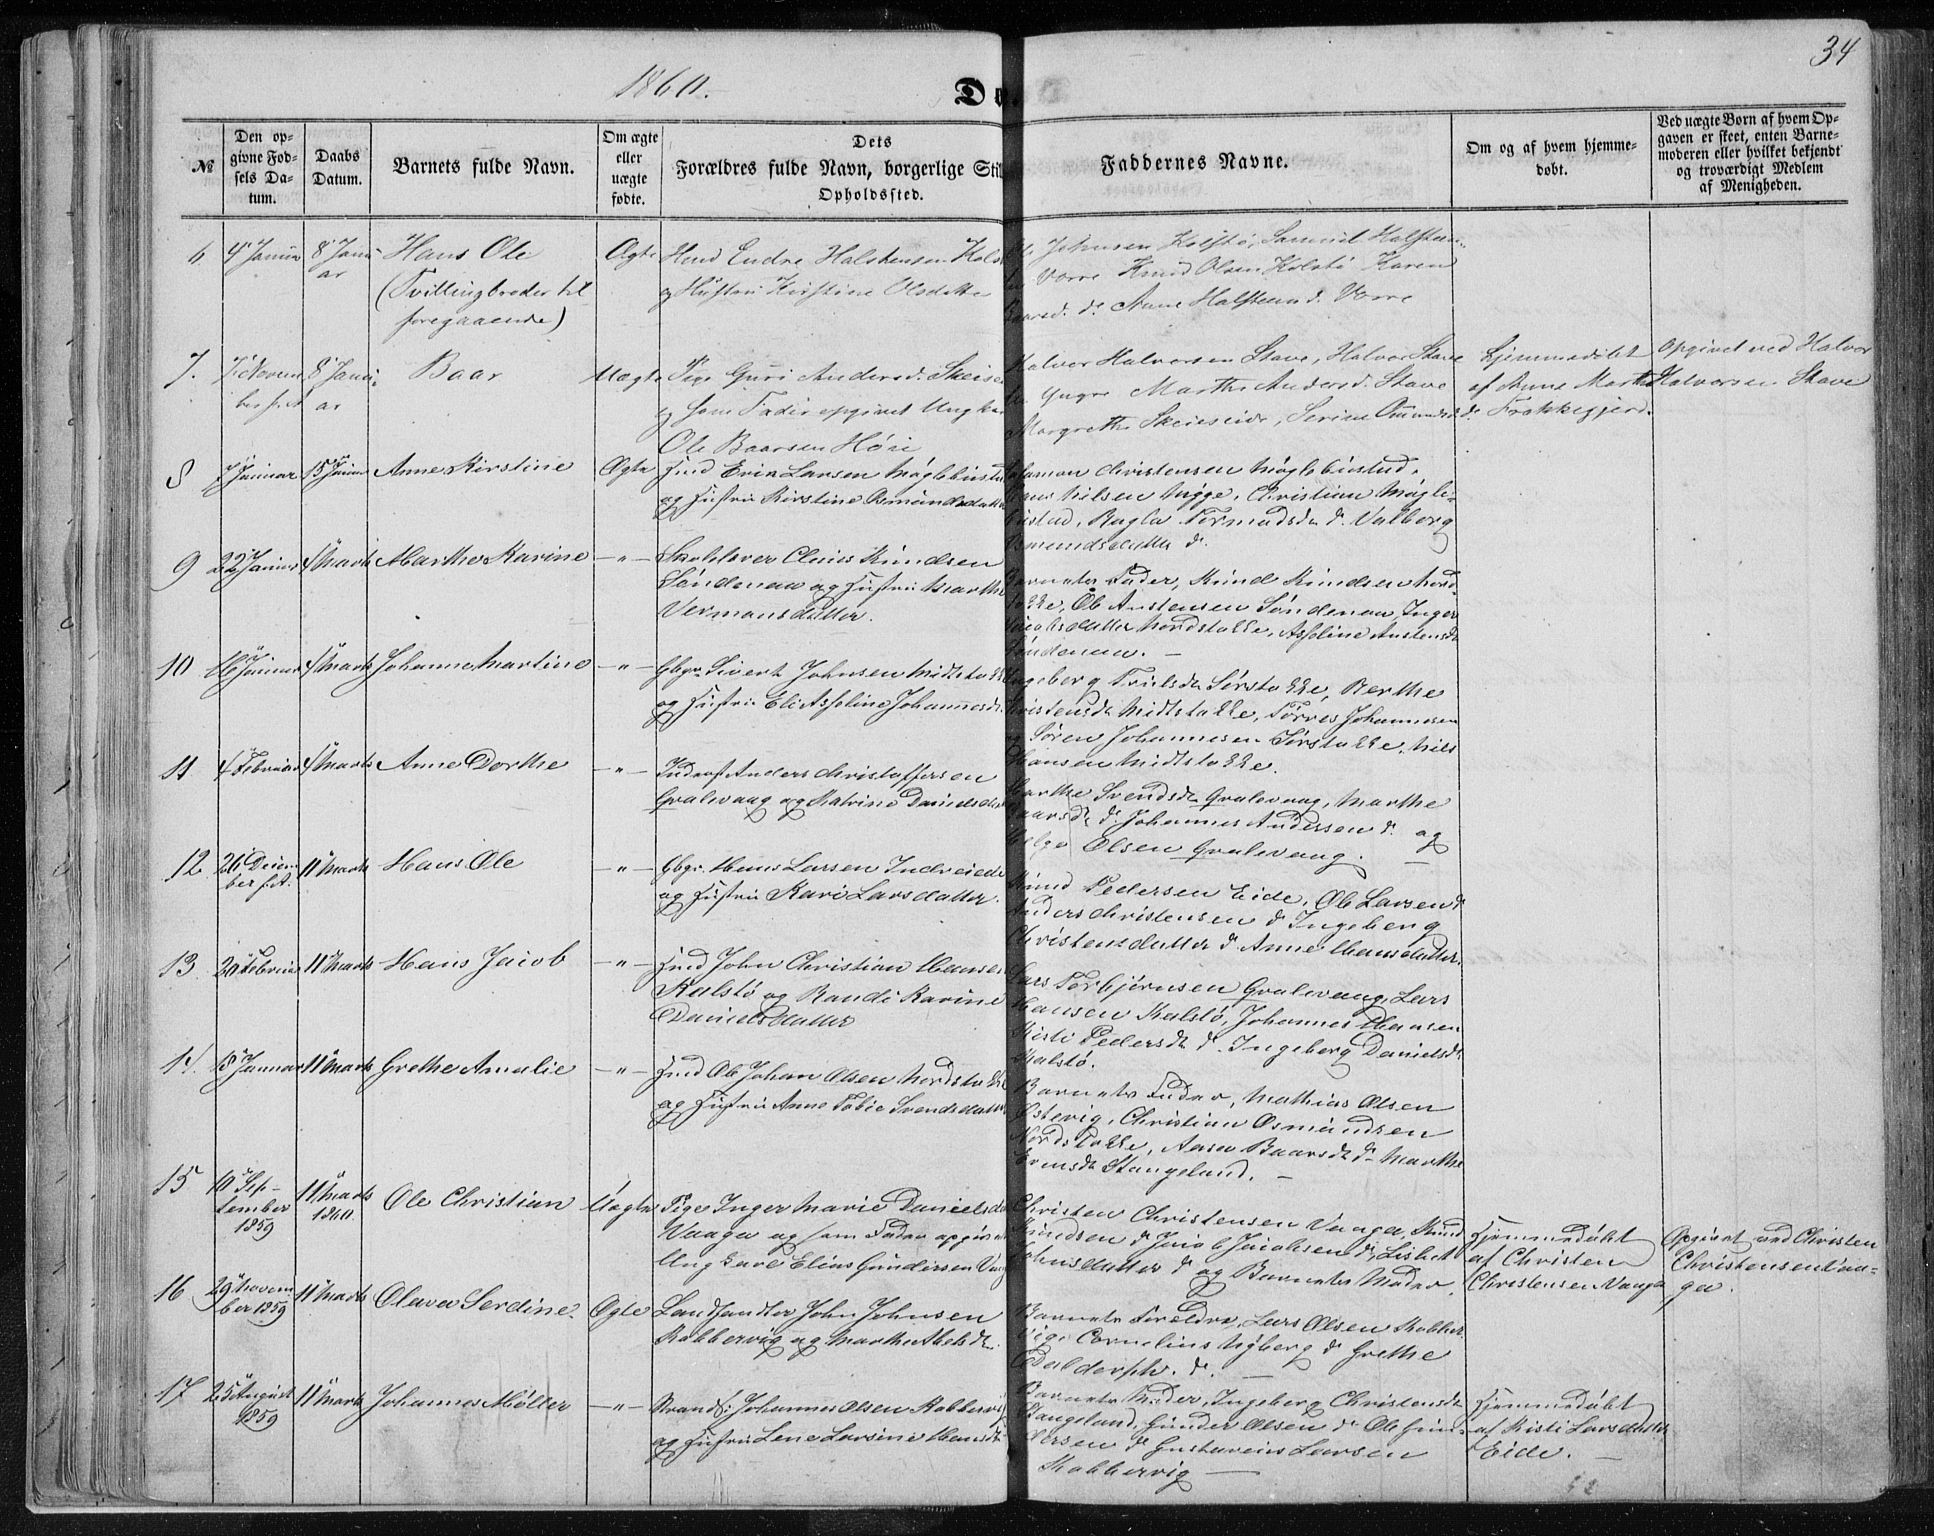 34
1860.
Do
№
Den op-
givne Fød-
sels Da-
tum.
Daabs
Datum.
Barnets fulde Navn.
Om ægte
eller
uægte
fødte.
Dets
Forældres fulde Navn, borgerlige Stil
Opholdssted.
Faddernes Navne.
Om og af hvem hjemme-
døbt.
Ved uægte Børn af hvem Op-
gaven er skeet, enten Barne-
moderen eller hvilket bekjendt
og troværdigt Medlem
af Menigheden.
6
4 Januar
8 Janu
ar
Hans Ole
(Tvillingbroder til
foregaaende)
Ægte
Endre Halstensen
og Hustru Kirstine Olsdatter
Johnsen Kolstø, Samuel Halsten
Vorre Knud Olsen Kolstø Karen
Baarsd. ds Anne Halstensd. Vorre
7.
7 Novem
ber f. A
8 Janu
ar
Baar
Uægte
Pige Guri Andersd. Skeise
og som Fader opgivet Ungkar
Ole Baarsen Høie
Halvor Halvorsen Stave, Halvor Stave
Yngre Marthe Andersd. Stave
Margrethe Skeieseide, Serine
Hjemmedøbt
af Anne Marthe
Opgivet ved Halvor
Halvorsen Stave
8
7 Januar
15 Januar
Anne Kirstine
Ægte
Erik Larsen Møglebust
og Hustru Kirstine Osmundsdatter
Salamon Christensen Møglebustad,
Hans Nilsen Nygge, Christian Møgle-
bustad, Ragla Tormodsdr ds Valborg
Osmundsdatter ds
9
22 Januar
4 Marts
Marthe Karine
— " —
Skolelærer Claus Knudsen
Søndenaa og Hustru Marthe
Vermandsdatter.
Barnets Fader, Knud Knudsen Nord
stokke, Ole Austensen Søndenaa, Inger
Jacobsdatter Nordstokke, Asseline Austensdr
Søndenaa. —
10
16 Januar
4 Marts
Johanne Martine
— " —
Gbgr. Sivert Johnsen Midtstokke
og Hustru Eli Asseline Johannesdr
Ingeborg Troelsdr Sørstokke, Berthe
Christensdr Midtstokke, Torres Johannesen
og Søren Johannesen Sørstokke, Nils
Hansen Midtstokke.
11
4 Februar
4 Marts
Anne Dorthe
— " —
Inderst Anders Christoffersen
Gvalevaag og Malene Danielsdr
Marthe Svendsdr Gvalevaag, Marthe
Baarsdr ds. Johannes Andersen ds. og
Helge Olsen Gvalevaag.
12
26 Decem
ber f. A.
11 Marts
Hans Ole
— " —
Gbgr. Hans Larsen Indreeide
og Hustru Kari Larsdatter.
Knud Pedersen Eide, Ole Larsen ds
Anders Christensen ds Ingeborg
Christensdatter ds Anne Hansdatter
13
20 Februar
11 Marts
Hans Jacob
— " —
John Christian Hansen
Kalstø og Randi Karine
Danielsdatter
Lars Torbjørnsen Gvalevaag, Lars
Hansen Kalstø, Johannes Hansen
Kisti Pedersdr ds. Ingeborg Danielsdr
Kalstø.
14
15 Januar
11 Marts
Grethe Amalie
— " —
Ole Johan Olsen Nordstokke
og Hustru Anne Tobie Svendsdatter
Barnets Fader, Mathias Olsen
Østevig, Christian Osmundsen
Nordstokke, Aasa Baarsdr ds Marthe
Stangeland. —
15
10 Sep-
tember
1859
11 Marts
1860.
Ole Christian
Uægte
Pige Inger Marie Danielsdr
Vaaga og som Fader opgivet
Ungkarl Elias Gundersen
Christen Christensen Vaaga, Knud
Knudsen ds Jacob Jacobsen ds, Lisbet
Johnsdatter ds og Barnets Moder.
Hjemmedøbt
af Christen
Christensen Vaaga
Opgivet ved Christen
Christensen Vaa-
ga.
16
29 Novem
ber 1859
11 Marts
Olava Serdine.
Ægte
Landhandler John Johnsen
Kobbervig og Marthe Abelsdr.
Barnets Forældre, Lars Olsen Kobber
vig, Cornelius Nyberg ds Grethe
17
25 August
1859
11 Marts
Johannes Møller
— " —
Strands. Johannes Olsen Kobbervig
og Hustru Lene Larsine Hansdr
Barnets Moder, Ingeborg Christensdr
Stangeland, Gunder Olsen ds Ole Gun-
dersen ds Gustavius Larsen
Kobbervig —
Hjemmedøbt
af Kisti Larsdatter
Eide. —